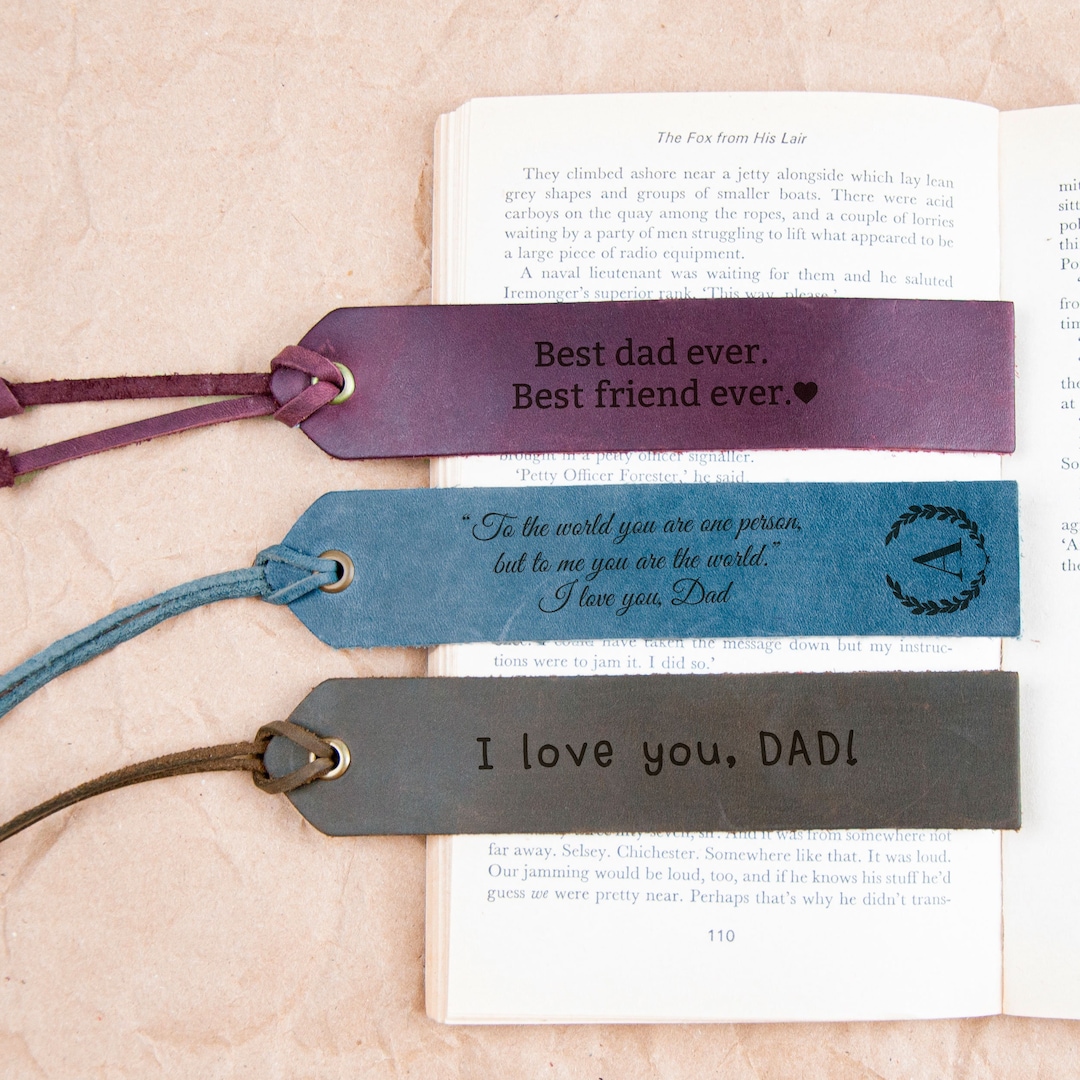 The Fox from His Lair
They climbed ashore near a jetty alongside which lay lean
grey shapes and groups of smaller boats. There were acid
carboys on the quay among the ropes, and a couple of lorries
waiting by a party of men struggling to lift what appeared to be
a large piece of radio equipment.
A naval lieutenant was waiting for them and he saluted
Iremonger's superior rank. 'This way, please.'
Best dad ever.
Best friend ever.♥
brought in a petty officer signaller.
'Petty Officer Forester,' he said.
“To the world you are one person,
but to me you are the world.”
I love you, Dad
A
have taken the message down but my instruc-
tions were to jam it. I did so.'
I love you, DAD!
And it was from somewhere not
far away. Selsey. Chichester. Somewhere like that. It was loud.
Our jamming would be loud, too, and if he knows his stuff he'd
guess we were pretty near. Perhaps that's why he didn't trans-
110